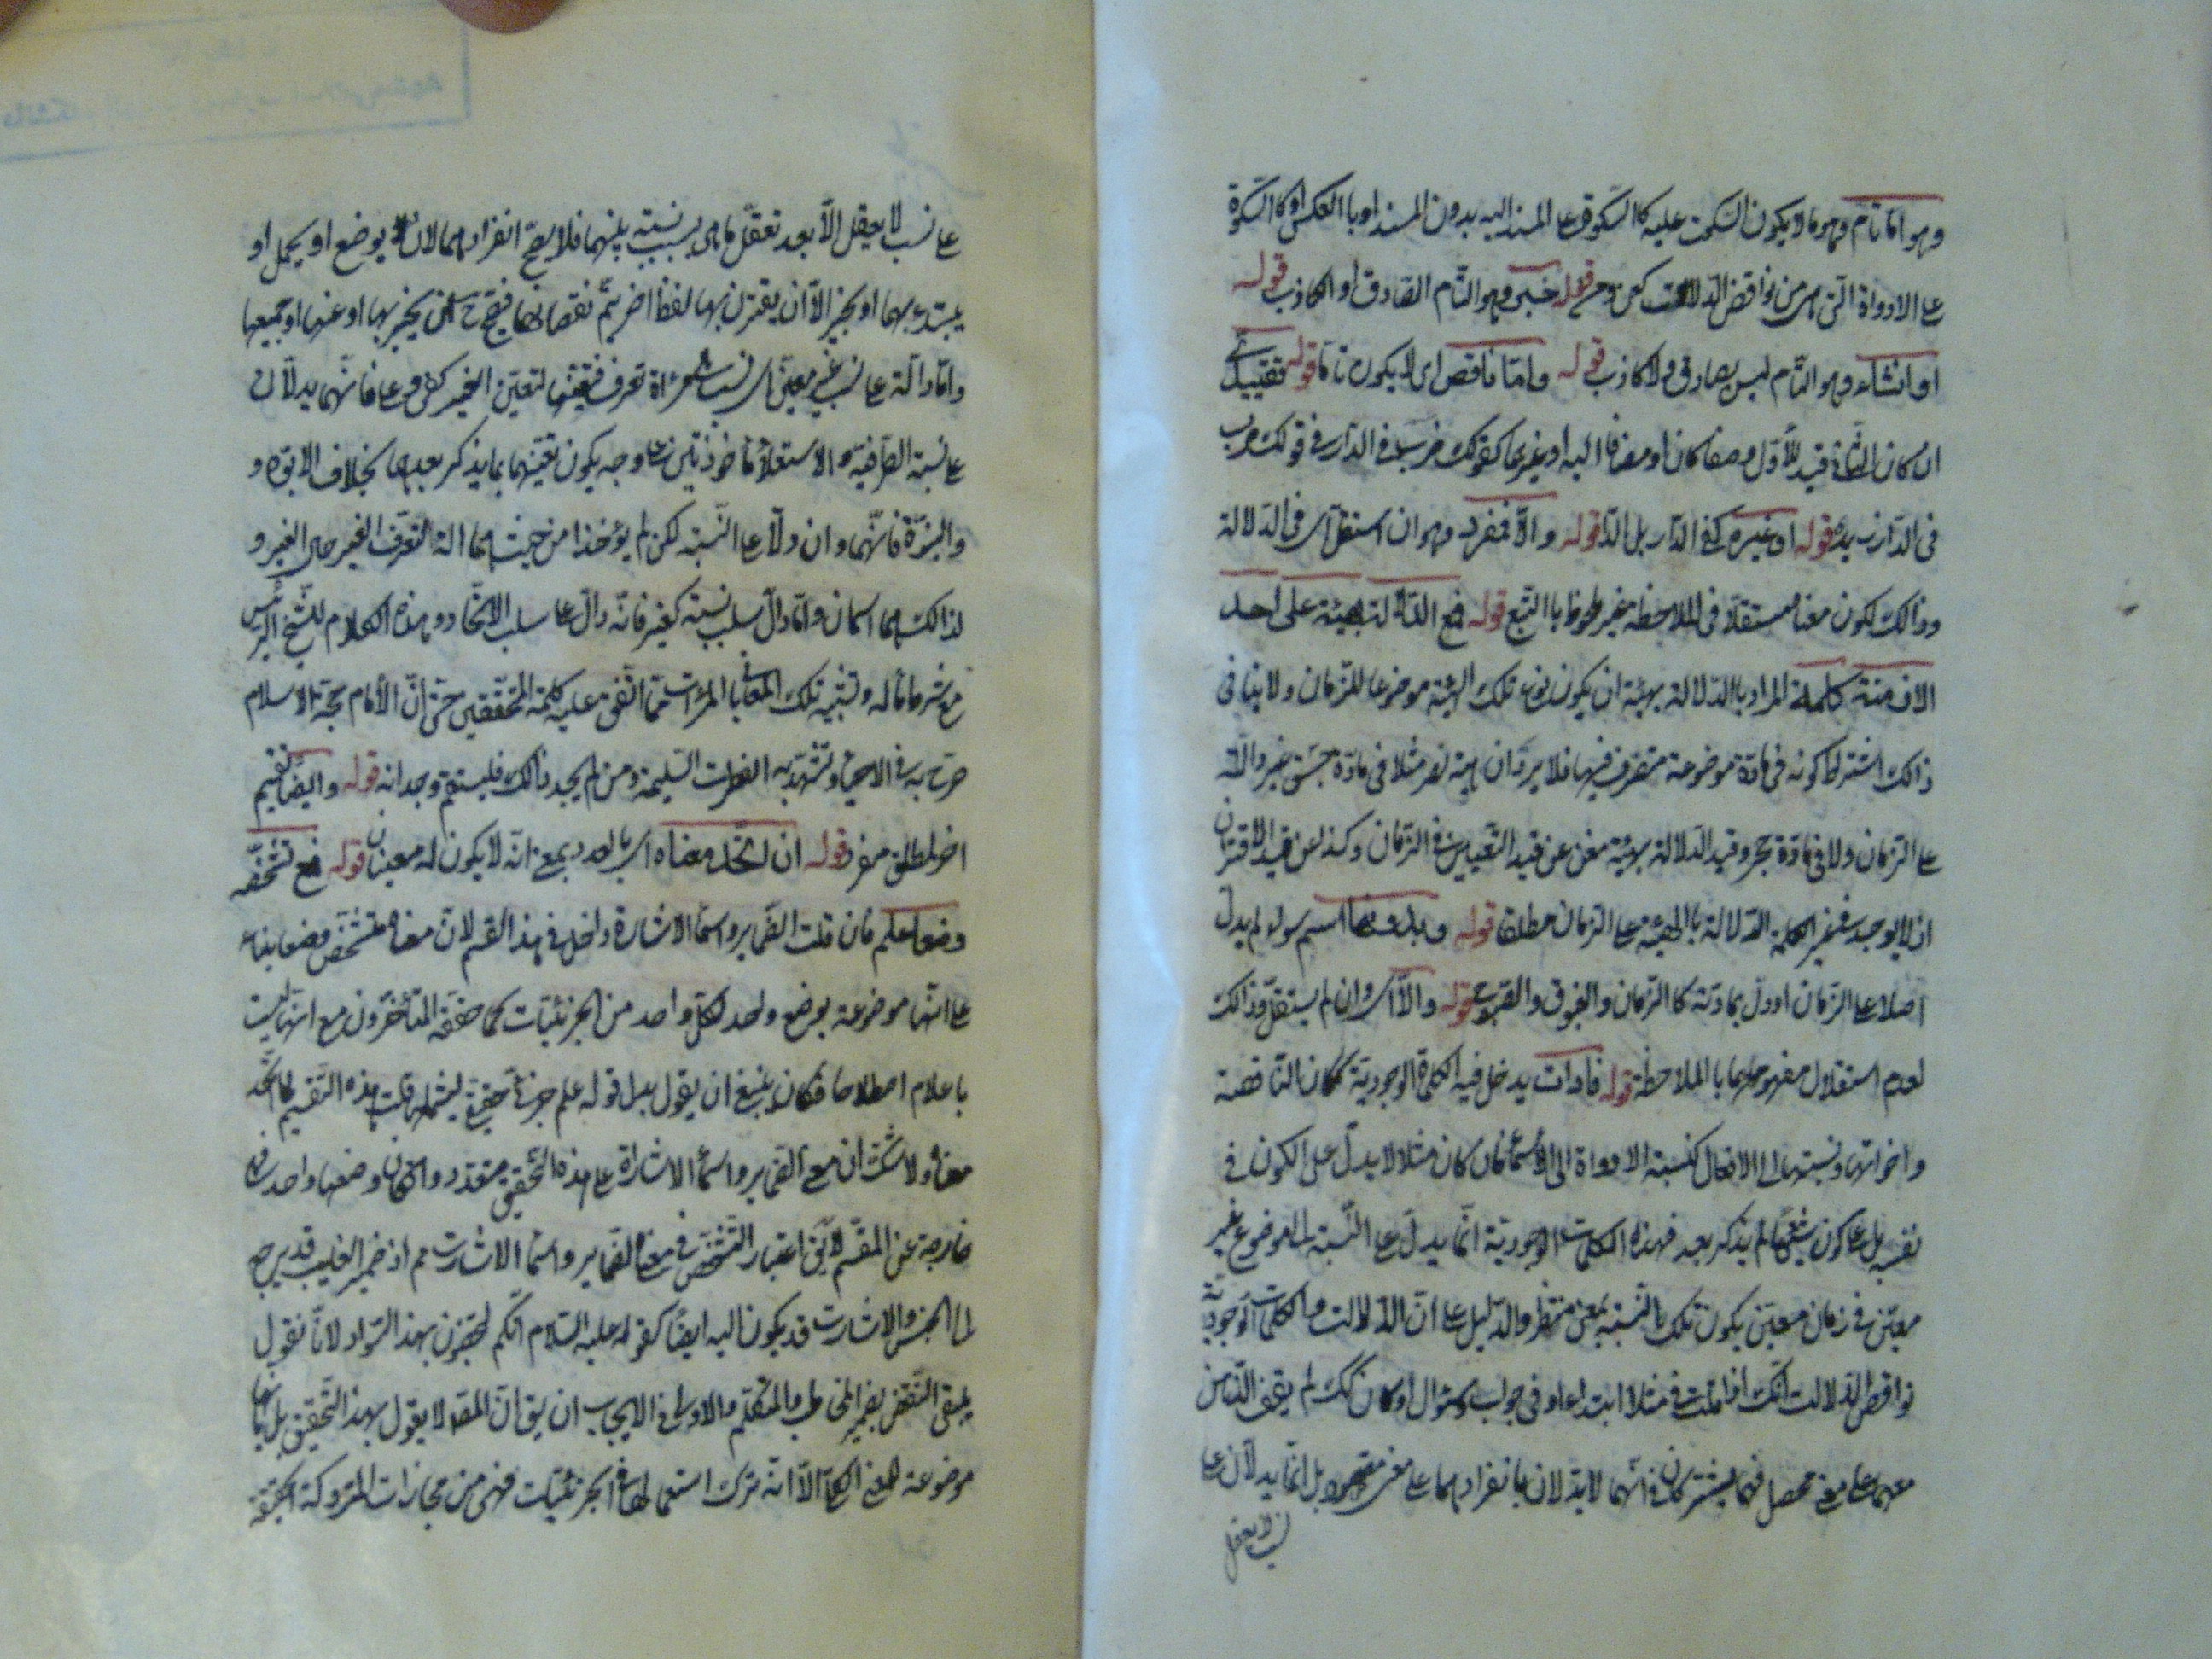 وهو اما تام وهو ما لا يكون السكوت عليه كالسكوت على المسند اليه بدون المسند او بالعكس او كالسكوت
على الادواة التي هي من نواقض الدلالات كمن وفي قوله خبر وهو التام الصادق او الكاذب قوله
او انشاء وهو التام ليس بصادق ولا كاذب قوله واما ناقص اى لا يكون تاما قوله تقييدى
ان كان الثانى قيد للاول وصفا كان او مضافا اليه او غيرهما كقولك ضرب فى الدار فى قولك ضرب
فى الدار زيد قوله او غيره كفى الدار بل الدا قوله والا فمفرد وهو ان استقل اى فى الدلالة
وذالك لكون معناه مستقلا فى الملاحظة غير ملحوظ با التبع قوله فمع الدلالة بهيئة على احد
الازمنة كلمة المراد با الدلالة بهيئة ان يكون نوع تلك الهيئة موضوعا للزمان ولا ينافى
ذالك اشتراط كونه فى مادة موضوعة متصرف فيها فلا يرد ان هيئة نصر مثلا فى مادة جسق غير دالة
على الزمان ولا فى مادة حجر وقيد الدلالة بهيئة مغن عن قيد التعيين فى الزمان وكذا عن قيد الاقتران
اذ لا يوجد فى غير الكلمة الدلالة با الهيئة على الزمان مطلقا قوله وبدونها اسم سواء لم يدل
اصلا على الزمان او دل بمادته كا الزمان والغبوق والصبوح قوله والا اى وان لم يستقل وذالك
لعدم استقلال مفهومها با الملاحظة قوله فادات يدخل فيه الكلمة الوجودية ككان الناقصة
واخواتها ونسبتها الى الافعال كنسبة الادواة الى الاسماء فان كان مثلا لا يدل على الكون فى
نفسه بل على كون شئ شيئا لم يذكر بعد فهذه الكلمات الوجودية انما يدل على النسبة الى موضوع غير
معين فى زمان معين يكون تلك النسبة لمعنى منتظر والدليل على ان الادوات والكلمات الوجودية
نواقص الدلالات انك اذا قلت فى مثلا ابتداء او فى جواب سؤال او كان كك لم يقف الذهن
معهما على معنى محصل فهما يشتركان فى انهما لا يدلان بانفرادهما على معنى متصور بل انما يدلان على
نسب لا يعقل
على نسب لا يعقل الا بعد تعقل ما هى نسبة بينهما فلا يصح انفرادهما لان يوضع او يحمل او
يبتدء بهما او يخبر الا ان يقترن بهما لفظ اخر يتم نقصانهما فيصح ح ان يخبر بها او عنها او بجميعها
واما دالة على نسب غير معين اى نسبة مرآة تعرف فتعينها لتعين الغير كفى وعلى فانهما يدلان
على نسبة الظرفية والاستعلاء ماخوذتين على وجه يكون تعينهما بما يذكر بعدهما بخلاف الابوة و
والبنوة فانهما وان دلا على النسبة لكن لم يؤخذا من حيث هما الة لتعرف الغير حال الغير و
لذالك هما اسمان واما دال سلب نسبة كغير فانه دال على سلب الاتحاد وهذه الكلام للشيخ الرئيس
مع شرحنا له وتشبيه تلك المعانى با المرآت مما اتفق عليه كلمة المحققين حتى ان الامام حجة الاسلام
صرح به فى الاحياء وتشهد به الفطرات السليمة ومن لم يجد ذالك فليستقم وجدانه قوله وايضا تقسيم
اخر لمطلق مفرد قوله ان اتحد معناه اى با لعدد بمعنى انه لا يكون له معنيان قوله فمع تشخصه
وضعا علم فان قلت الضماير واسماء الاشارة داخل فى هذا القسم لان معناه متشخص وضعا بناء
على انها موضوعة بوضع واحد لكل واحد من الجزئيات كما حققه المتاخرون مع انها ليست
باعلام اصطلاحا فكان ينبغى ان يقول بدل قوله علم جزئى حقيقى ليشملها قلت هذه التقسيم لما اتحد
معناه ولا شك ان معنى الضماير واسماء الاشارة على هذه التحقيق متعدد وان كان وضعها واحد فهى
خارجة عن المقسم لا يق اعتبار التشخص فى معنى الضماير واسماء الاشارت مم اذ ضمير الغايب قد يرجع
الى الجنس والاشارت قد يكون اليه ايضا كقوله عليه السلام انكم لمحقرون بهذا السواد لانا نقول
يبقى النقض بضمير المخاطب والمتكلم والاولى فى الايجاب ان يق ان المصـ لا يقول بهذا التحقيق بل بانها
موضوعة للمعنى الكلى الا انه ترك استعمالها فى الجزئيات فهى من مجازات المتروكة الحقيقة